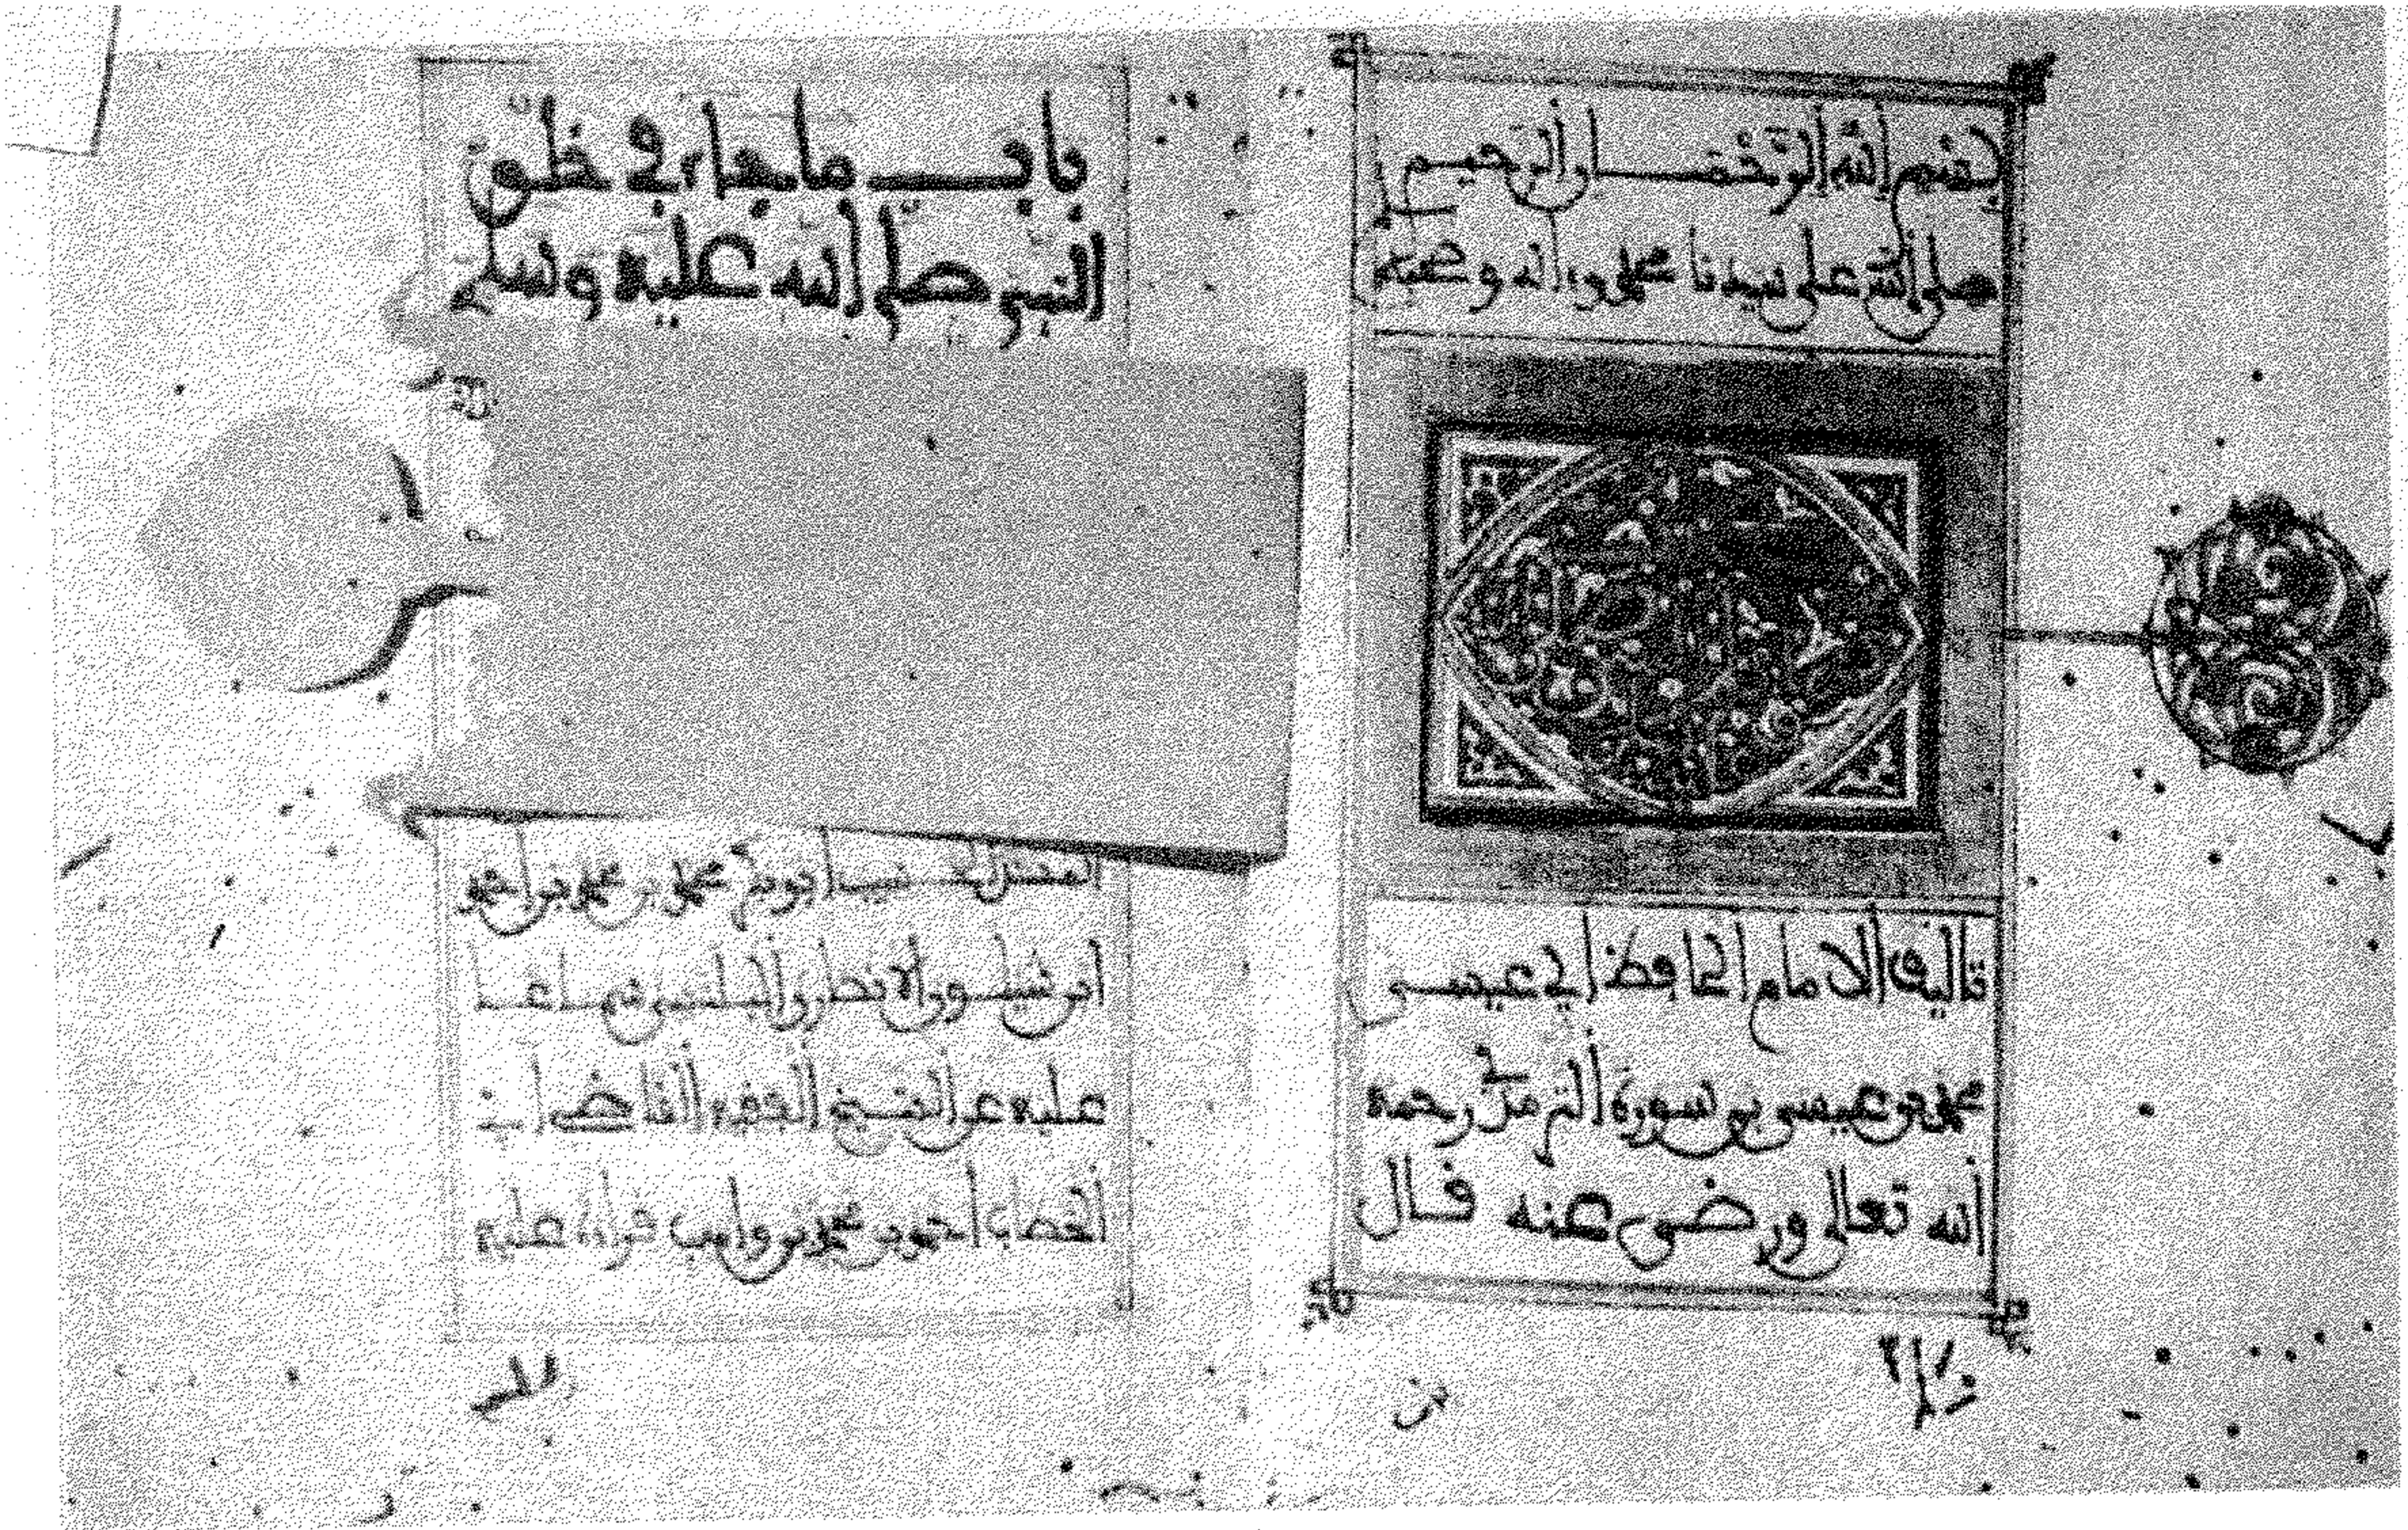 بسم الله الرحمن الرحيم
صلى الله على سيدنا محمد وءاله وصحبه
تاليف الامام الحافظ ابي عيسى
محمد بن عيسى بن سورة الترمذي رحمه
الله تعالى ورضي عنه قال
باب ما جاء في خلق
النبي صلى الله عليه وسلم
ابو بكر محمد بن محمد بن احمد
البلنسي سماعا
عليه عن الشيخ الفقيه القاضي ابي
الخطاب احمد بن محمد بن واجب قراءة عليه